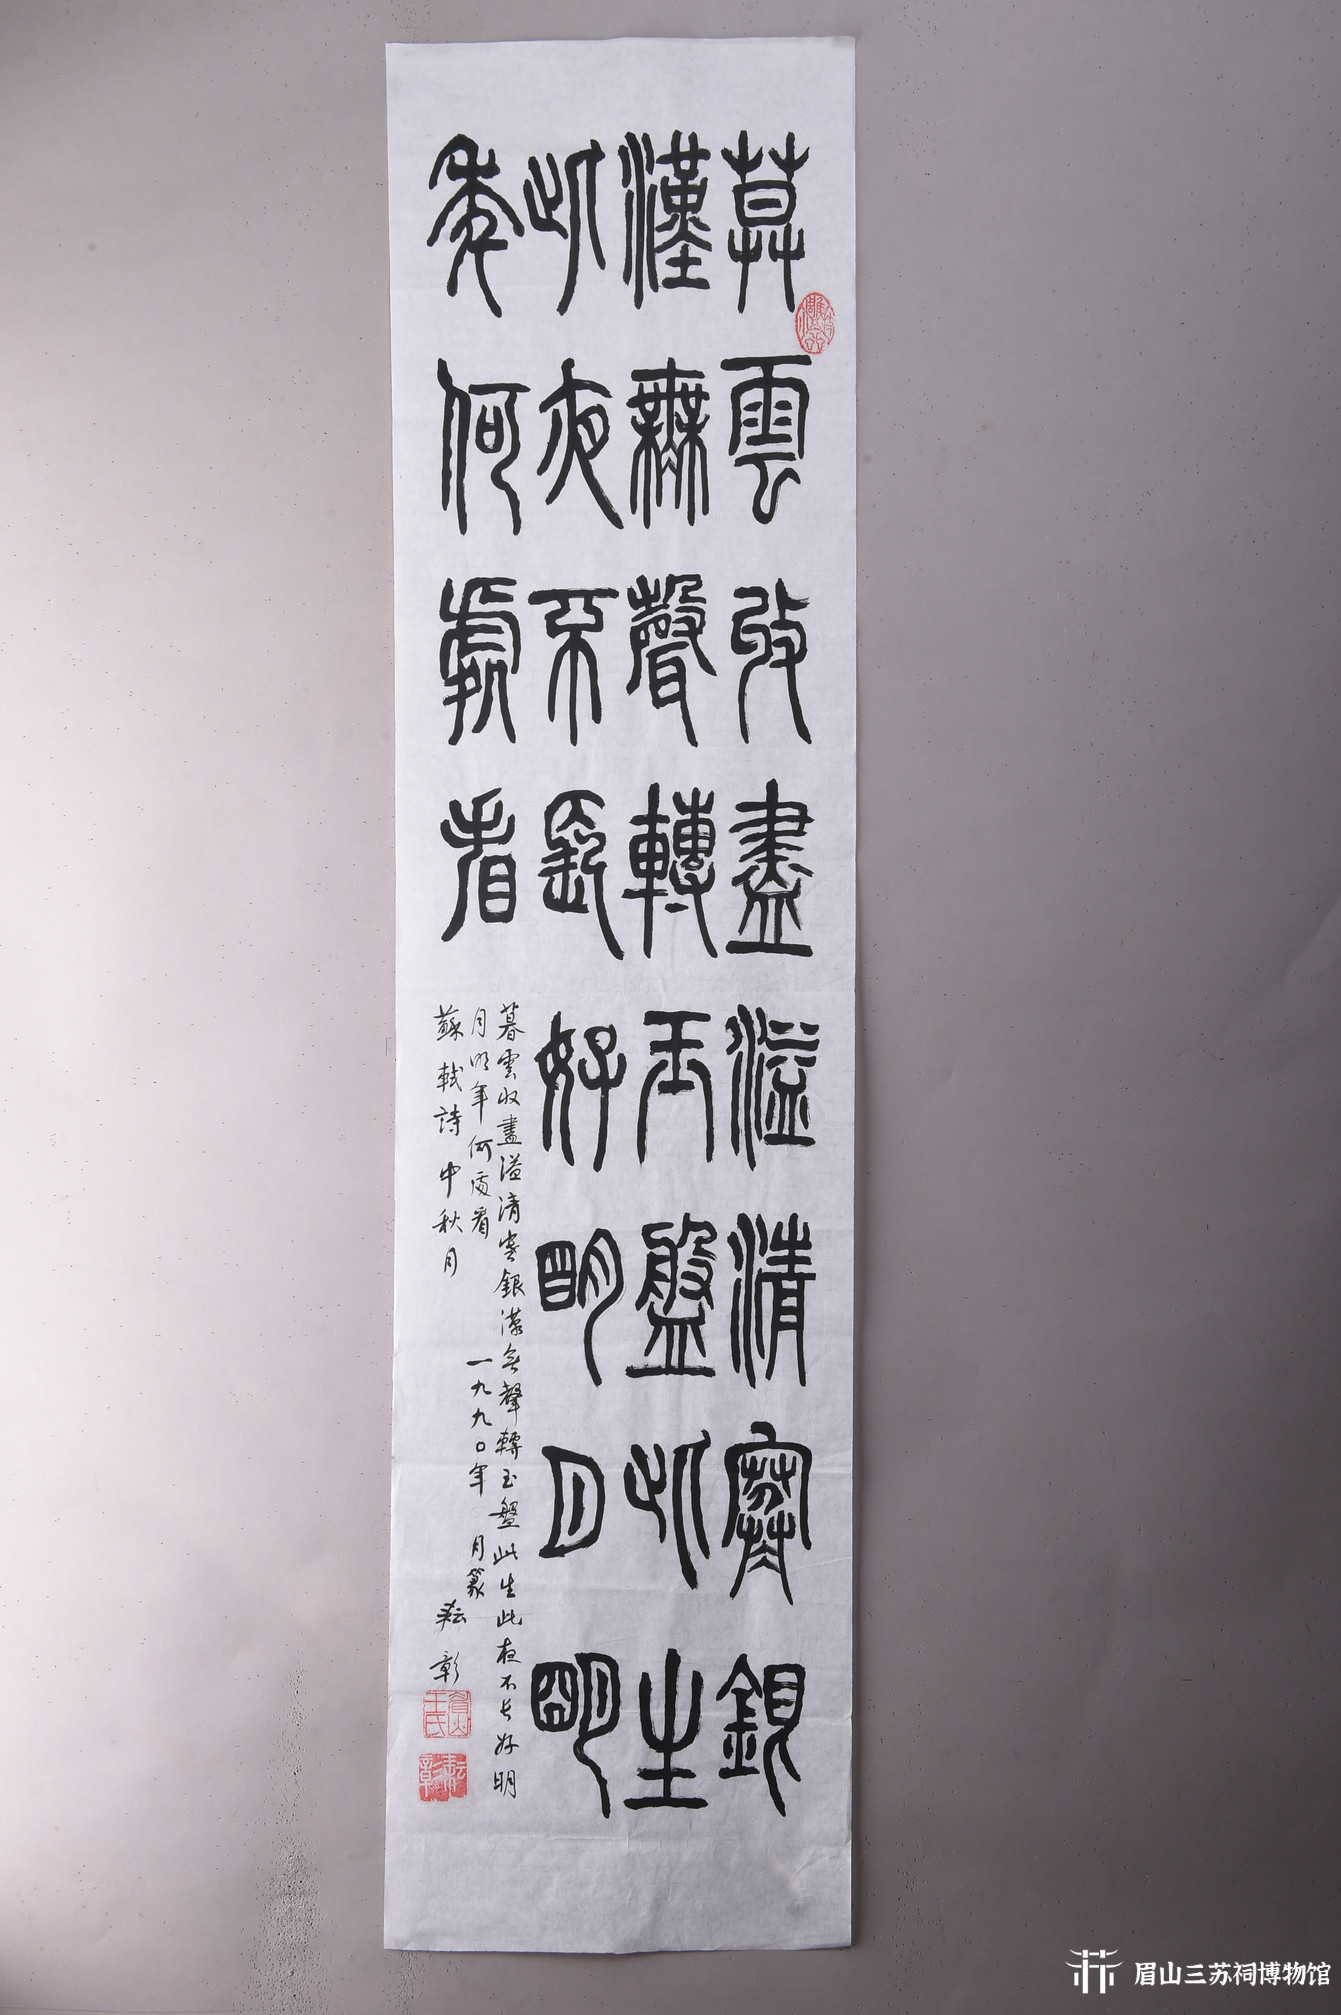 暮雲收盡溢清寒銀
漢無聲轉玉盤此生
此夜不長好明月明
年何處看
暮雲收盡溢清寒銀漢無聲轉玉盤此生此夜不长好明
月明年何處看
一九九〇年 月篆
蘇軾詩中秋月
耘彰
王氏
耘彰
眉山三苏祠博物馆